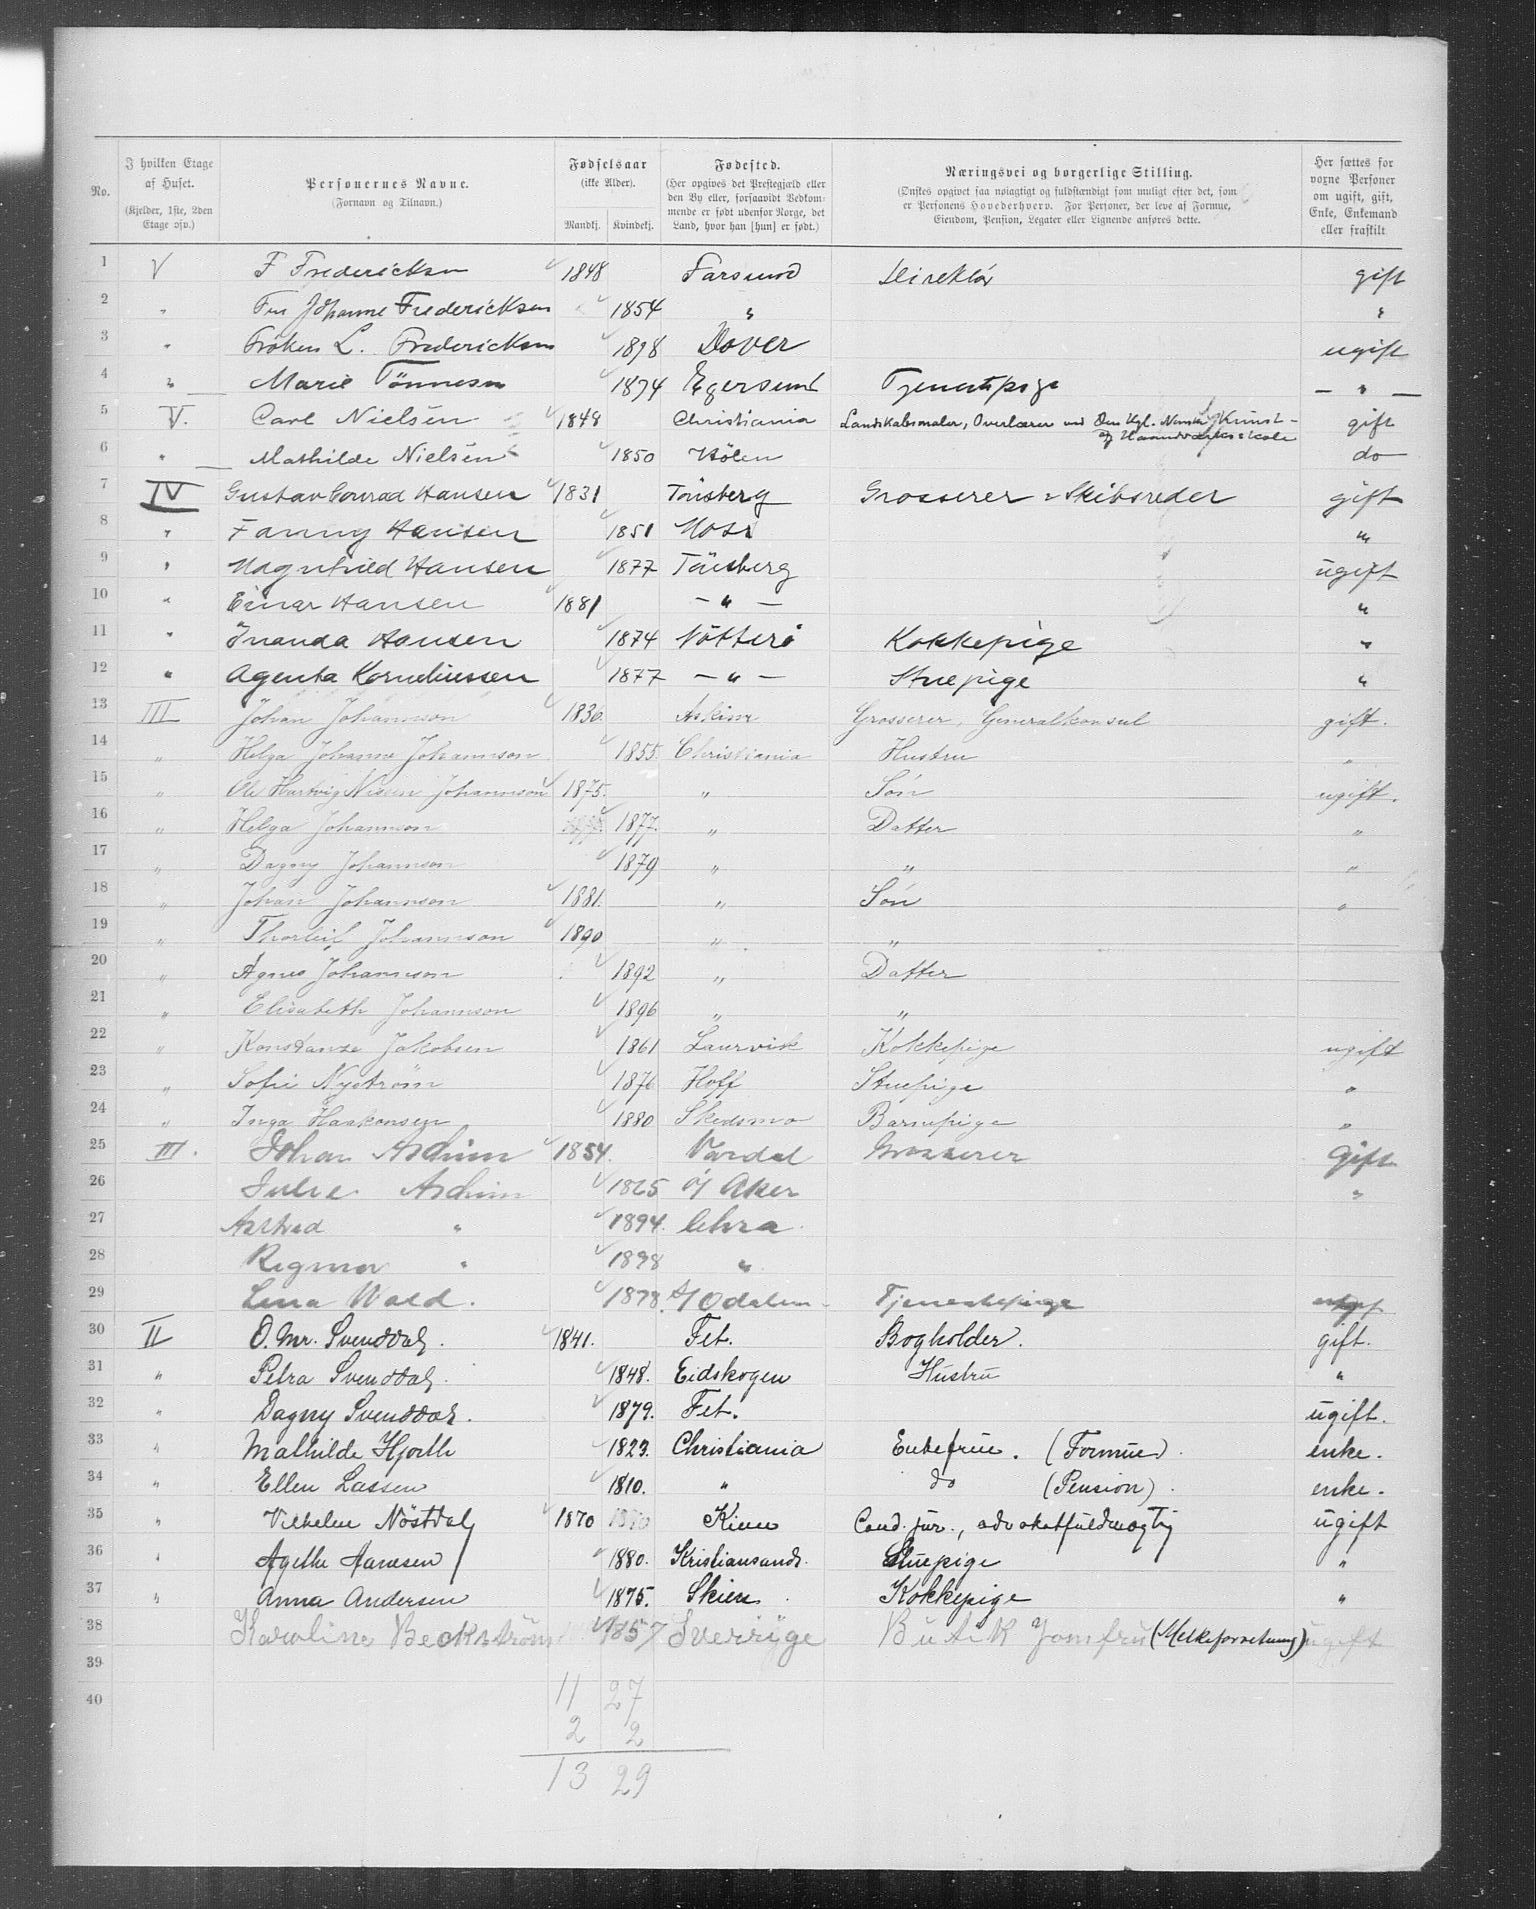 No.
I hvilken Etage af Huset. (Kjelder, 1ste, 2den Etage osv.)
Personernes Navne. (Fornavn og Tilnavn.)
Fødselsaar (ikke Alder). Mandkj. Kvindekj.
Fødested. (Her opgives det Prestegjæld eller den By eller, forsaavidt Vedkommende er født udenfor Norge, det Land, hvor han [hun] er født.)
Næringsvei og borgerlige Stilling. (Ønskes opgivet saa nøiagtigt og fuldstændigt som muligt efter det, som er Personens Hovederhverv. For Personer, der leve af Formue, Eiendom, Pension, Legater eller Lignende anføres dette.
Her sættes for voxne Personer om ugift, gift, Enke, Enkemand eller fraskilt
1 V F Fredericksen 1848 Farsund Direktör gift
2 " Fru Johanne Fredericksen 1854 " "
3 " Fröken L. Fredericksen 1898 Dover ugift
4 " Marie Tönnesen 1874 Egersund Tjenestepige — " —
5 V. Carl Nielsen 1848 Christiania Landskabsmaler, Overlærer ved Den Kgl. Norske Kunst- og Haandværksskole gift
6 " Mathilde Nielsen 1850 Hölen do
7 IV Gustav Conrad Hansen 1831 Tönsberg Grosserer & Skibsreder gift
8 " Fanny Hansen 1851 Moss "
9 " Magnhild Hansen 1877 Tönsberg ugift
10 " Einar Hansen 1881 — " — "
11 " Inanda Hansen 1874 Nötterö Kokkepige "
12 " Agenta Korneliussen 1877 — " — Stuepige "
13 III Johan Johannson 1836. Askim Grosserer, Generalkonsul gift.
14 " Helga Johanne Johannson 1855. Christiania Hustru "
15 " Ole Hartvig Nissen Johannson 1875. " Søn ugift.
16 " Helga Johannson 1877. " Datter "
17 " Dagny Johannson 1879 " " "
18 " Johan Johannson 1881. " Søn "
19 " Thorleif Johannson 1890 " "
20 " Agnes Johannson 1892 " Datter
21 " Elisabeth Johannson 1896 " "
22 " Konstanse Jakobsen 1861 Laurvik Kokkepige ugift
23 " Sofie Nyström 1876 Hoff Stuepige "
24 " Inga Haakonsen 1880 Skedsmo Barnepige "
25 III. Johan Aschim 1854. Vardal Grosserer Gift
26 Julie Aschim 1865 V/ Aker "
27 Astrid " 1894. Chra.
28 Regmor " 1898 "
29 Lina Wold. 1878. S/ Odalen Tjenestepige
30 II O. Mr. Svenddal. 1841. Fet. Bogholder. gift.
31 " Petra Svenddal. 1848. Eidskogen Hustru "
32 " Dagny Svenddal. 1879. Fet. ugift.
33 " Mathilde Hjorth 1823. Christiania Enkefrue. (Formue). enke.
34 " Ellen Lassen 1810. " do (Pension). enke.
35 " Vilhelm Nöstdal 1870 Cand. jur., advokatfuldmægtig ugift
36 " Agethe Hansen 1880. Kristiansand. Stuepige "
37 " Anna Andersen 1875. Skien. Kokkepige "
38 Karoline Beckström 1857 Sverrige Butik Jomfru (Melkeforretning) ugift
39
40
11 27
2 2
13 29